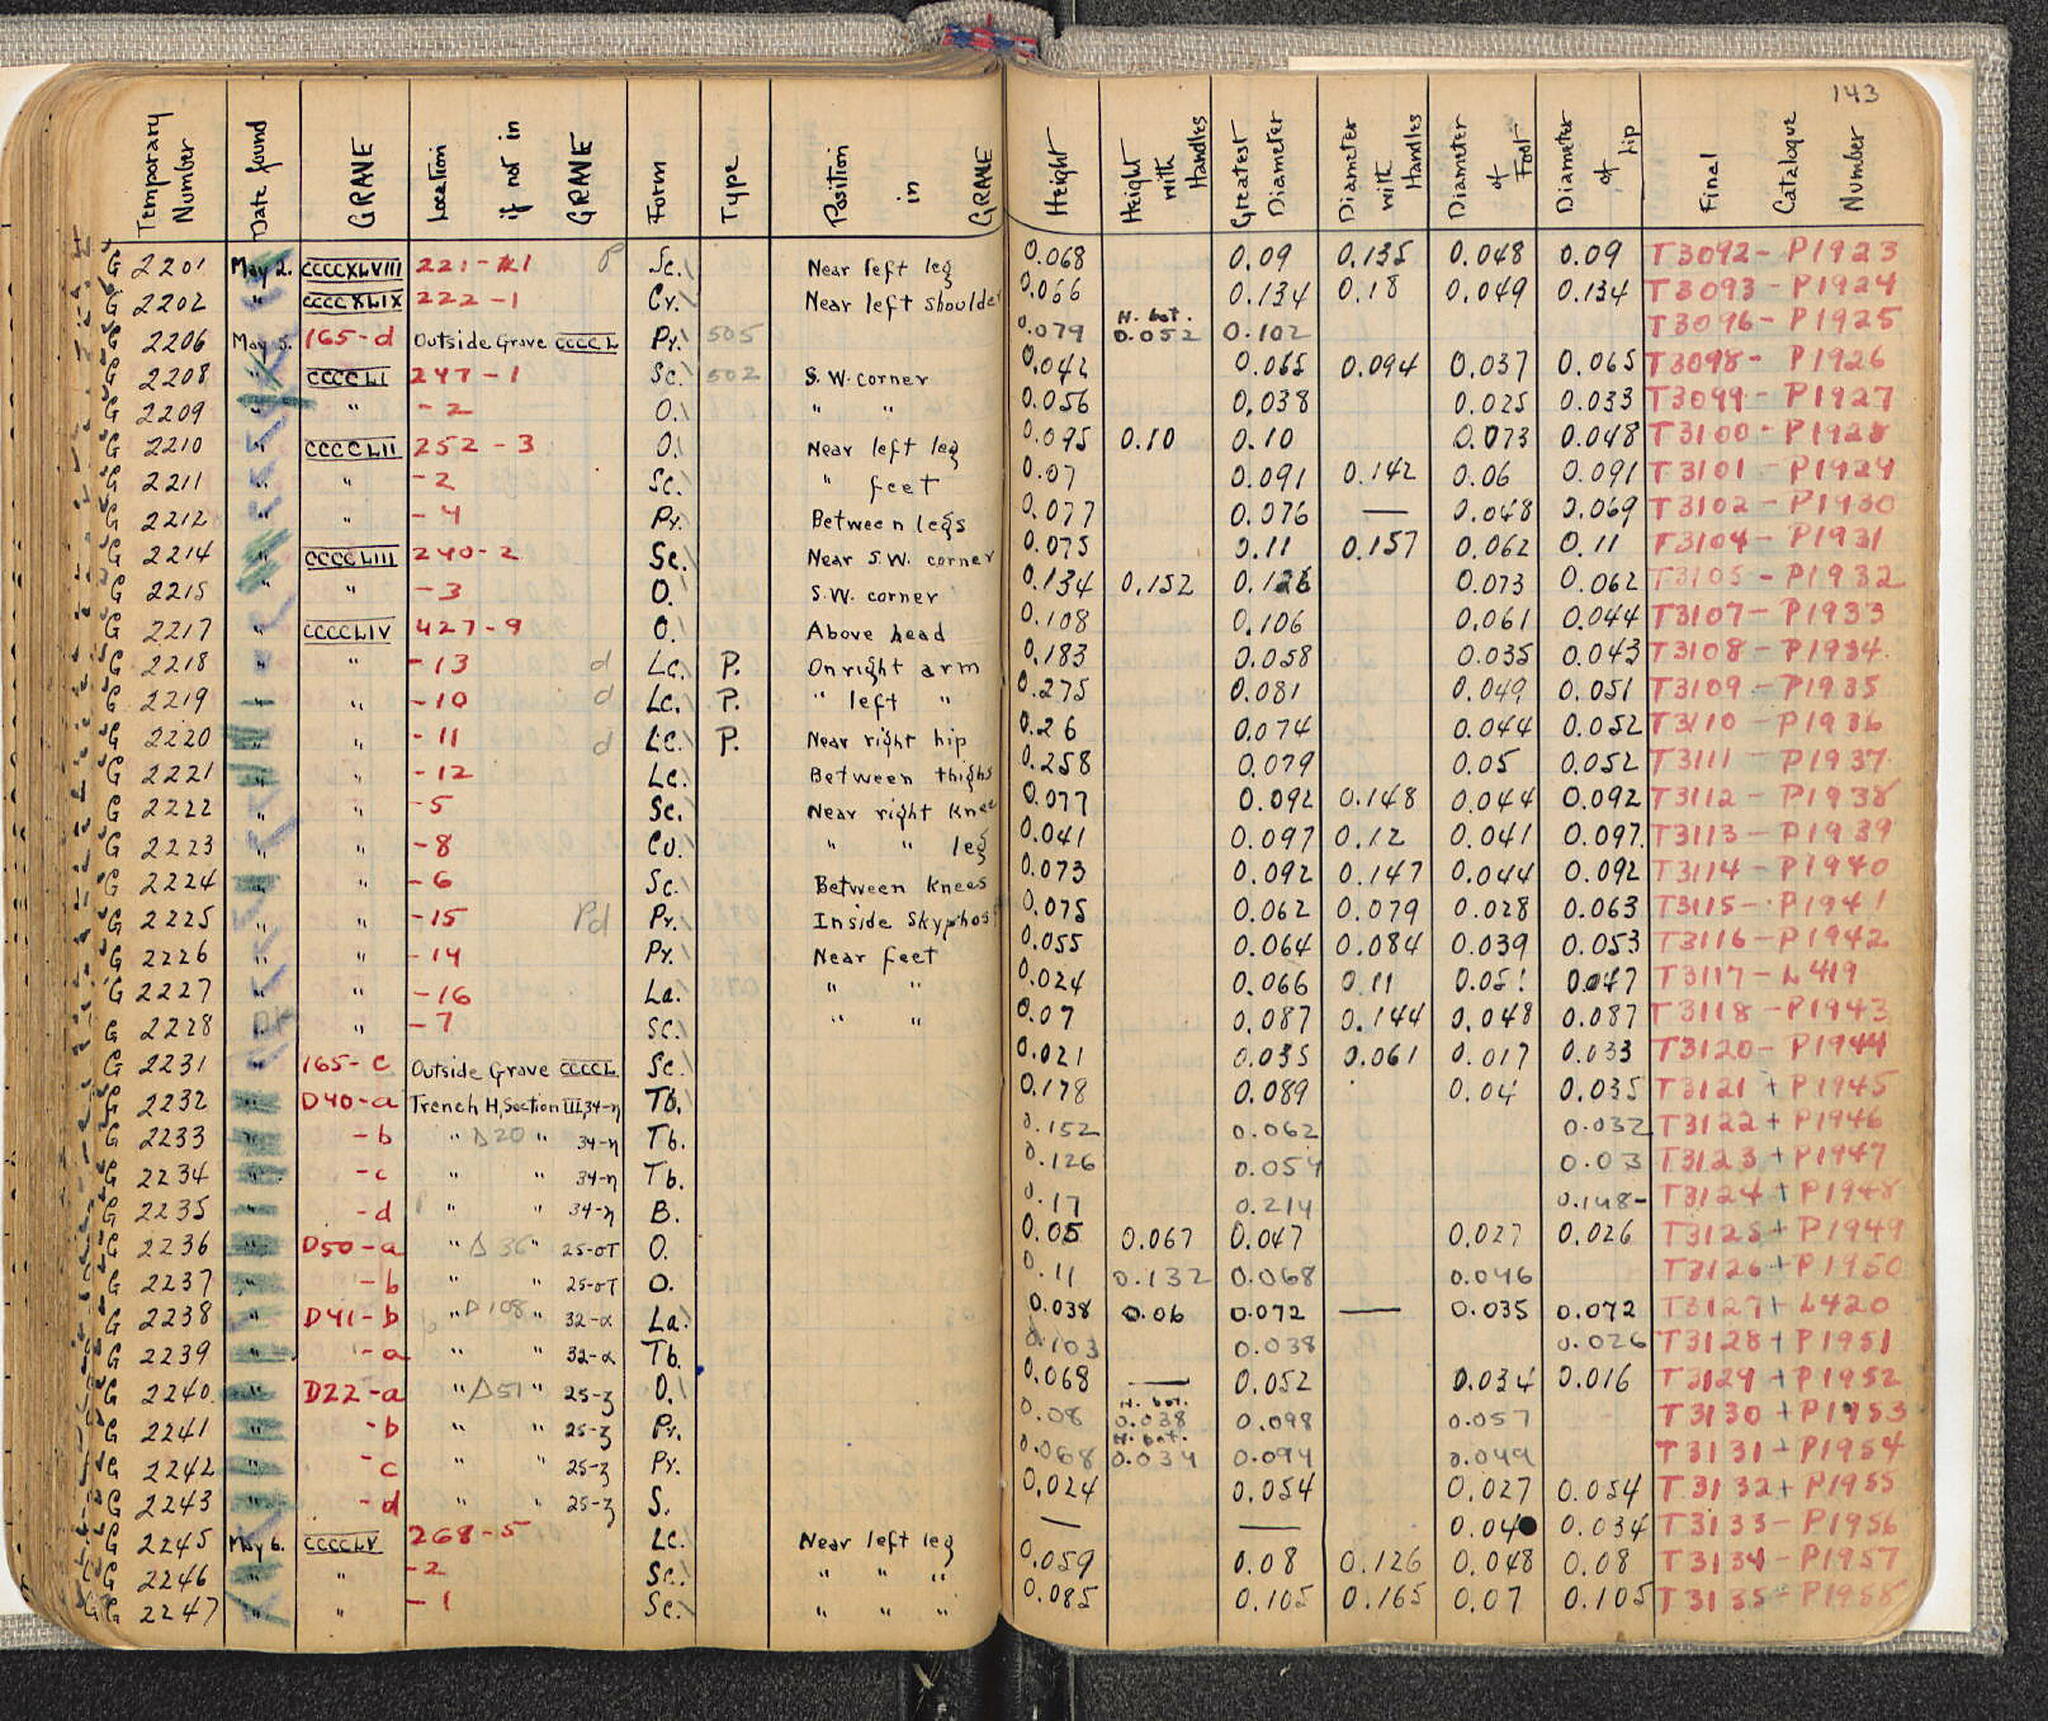 143
Temporary Number Date found GRAVE Location if not in GRAVE Form Type Position in GRAVE Height Height with Handles Greatest Diameter Diameter with Handles Diameter of Foot Diameter of Lip Final Catalogue Number
G 2201 May 2. CCCCXLVIII 221-1 P Sc. Near left leg 0.068 0.09 0.135 0.048 0.09 T3092-P1923
G 2202 " CCCCXLIX 222-1 Cr. Near left shoulder 0.066 0.134 0.18 0.049 0.134 T3093-P1924
G 2206 May 5. 165-d Outside Grave CCCCL Pr. 505 0.079 H. bot. 0.052 0.102 T3096-P1925
G 2208 " CCCCLI 247-1 Sc. 502 S.W. corner 0.042 0.065 0.094 0.037 0.065 T3098-P1926
G 2209 " " -2 O. " " 0.056 0.038 0.025 0.033 T3099-P1927
G 2210 " CCCCLII 252-3 O. Near left leg 0.095 0.10 0.10 0.073 0.048 T3100-P1928
G 2211 " " -2 Sc. " feet 0.07 0.091 0.142 0.06 0.091 T3101-P1929
G 2212 " " -4 Pr. Between legs 0.077 0.076 — 0.048 0.069 T3102-P1930
G 2214 " CCCCLIII 240-2 Sc. Near S.W. corner 0.075 0.11 0.157 0.062 0.11 T3104-P1931
G 2215 " " -3 O. S.W. corner 0.134 0.152 0.126 0.073 0.062 T3105-P1932
G 2217 " CCCCLIV 427-9 O. Above head 0.108 0.106 0.061 0.044 T3107-P1933
G 2218 " " -13 d Lc. P. On right arm 0.183 0.058 0.035 0.043 T3108-P1934
G 2219 " " -10 d Lc. P. " left " 0.275 0.081 0.049 0.051 T3109-P1935
G 2220 " " -11 d Lc. P. Near right hip 0.26 0.074 0.044 0.052 T3110-P1936
G 2221 " " -12 Lc. Between thighs 0.258 0.079 0.05 0.052 T3111-P1937
G 2222 " " -5 Sc. Near right knee 0.077 0.092 0.148 0.044 0.092 T3112-P1938
G 2223 " " -8 Cu. " " leg 0.041 0.097 0.12 0.041 0.097. T3113-P1939
G 2224 " " -6 Sc. Between knees 0.073 0.092 0.147 0.044 0.092 T3114-P1940
G 2225 " " -15 Pd Pr. Inside Skyphos 0.075 0.062 0.079 0.028 0.063 T3115-P1941
G 2226 " " -14 Pr. Near feet 0.055 0.064 0.084 0.039 0.053 T3116-P1942
G 2227 " " -16 La. " " 0.024 0.066 0.11 0.051 0.047 T3117-L419
G 2228 " " -7 Sc. " " 0.07 0.087 0.144 0.048 0.087 T3118-P1943
G 2231 " 165-c Outside Grave CCCCL Sc. 0.021 0.035 0.061 0.017 0.033 T3120-P1944
G 2232 " D40-a Trench H, Section III, 34-η Tb. 0.178 0.089 0.04 0.035 T3121+P1945
G 2233 " -b " Δ20 " 34-η Tb. 0.152 0.062 0.032 T3122+P1946
G 2234 " -c " " 34-η Tb. 0.126 0.054 0.03 T3123+P1947
G 2235 " -d " " 34-η B. 0.17 0.214 0.148- T3124+P1948
G 2236 " D50-a " Δ36 " 25-στ O. 0.05 0.067 0.047 0.027 0.026 T3125+P1949
G 2237 " -b " " 25-στ O. 0.11 0.132 0.068 0.046 T3126+P1950
G 2238 " D41-b " Δ108 " 32-α La. 0.038 0.06 0.072 — 0.035 0.072 T3127+L420
G 2239 " -a " " 32-α Tb. 0.103 0.038 0.026 T3128+P1951
G 2240 " D22-a " Δ51 " 25-ζ O. 0.068 — 0.052 0.034 0.016 T3129+P1952
G 2241 " -b " " 25-ζ Pr. 0.08 H. bot. 0.038 0.098 0.057 T3130+P1953
G 2242 " -c " " 25-ζ Pr. 0.068 H. bot. 0.034 0.094 0.049 T3131+P1954
G 2243 " -d " " 25-ζ S. 0.024 0.054 0.027 0.054 T3132+P1955
G 2245 May 6. CCCCLV 268-5 Lc. Near left leg — — 0.04 0.034 T3133-P1956
G 2246 " " -2 Sc. " " " 0.059 0.08 0.126 0.048 0.08 T3134-P1957
G 2247 " " -1 Sc. " " " 0.085 0.105 0.165 0.07 0.105 T3135-P1958